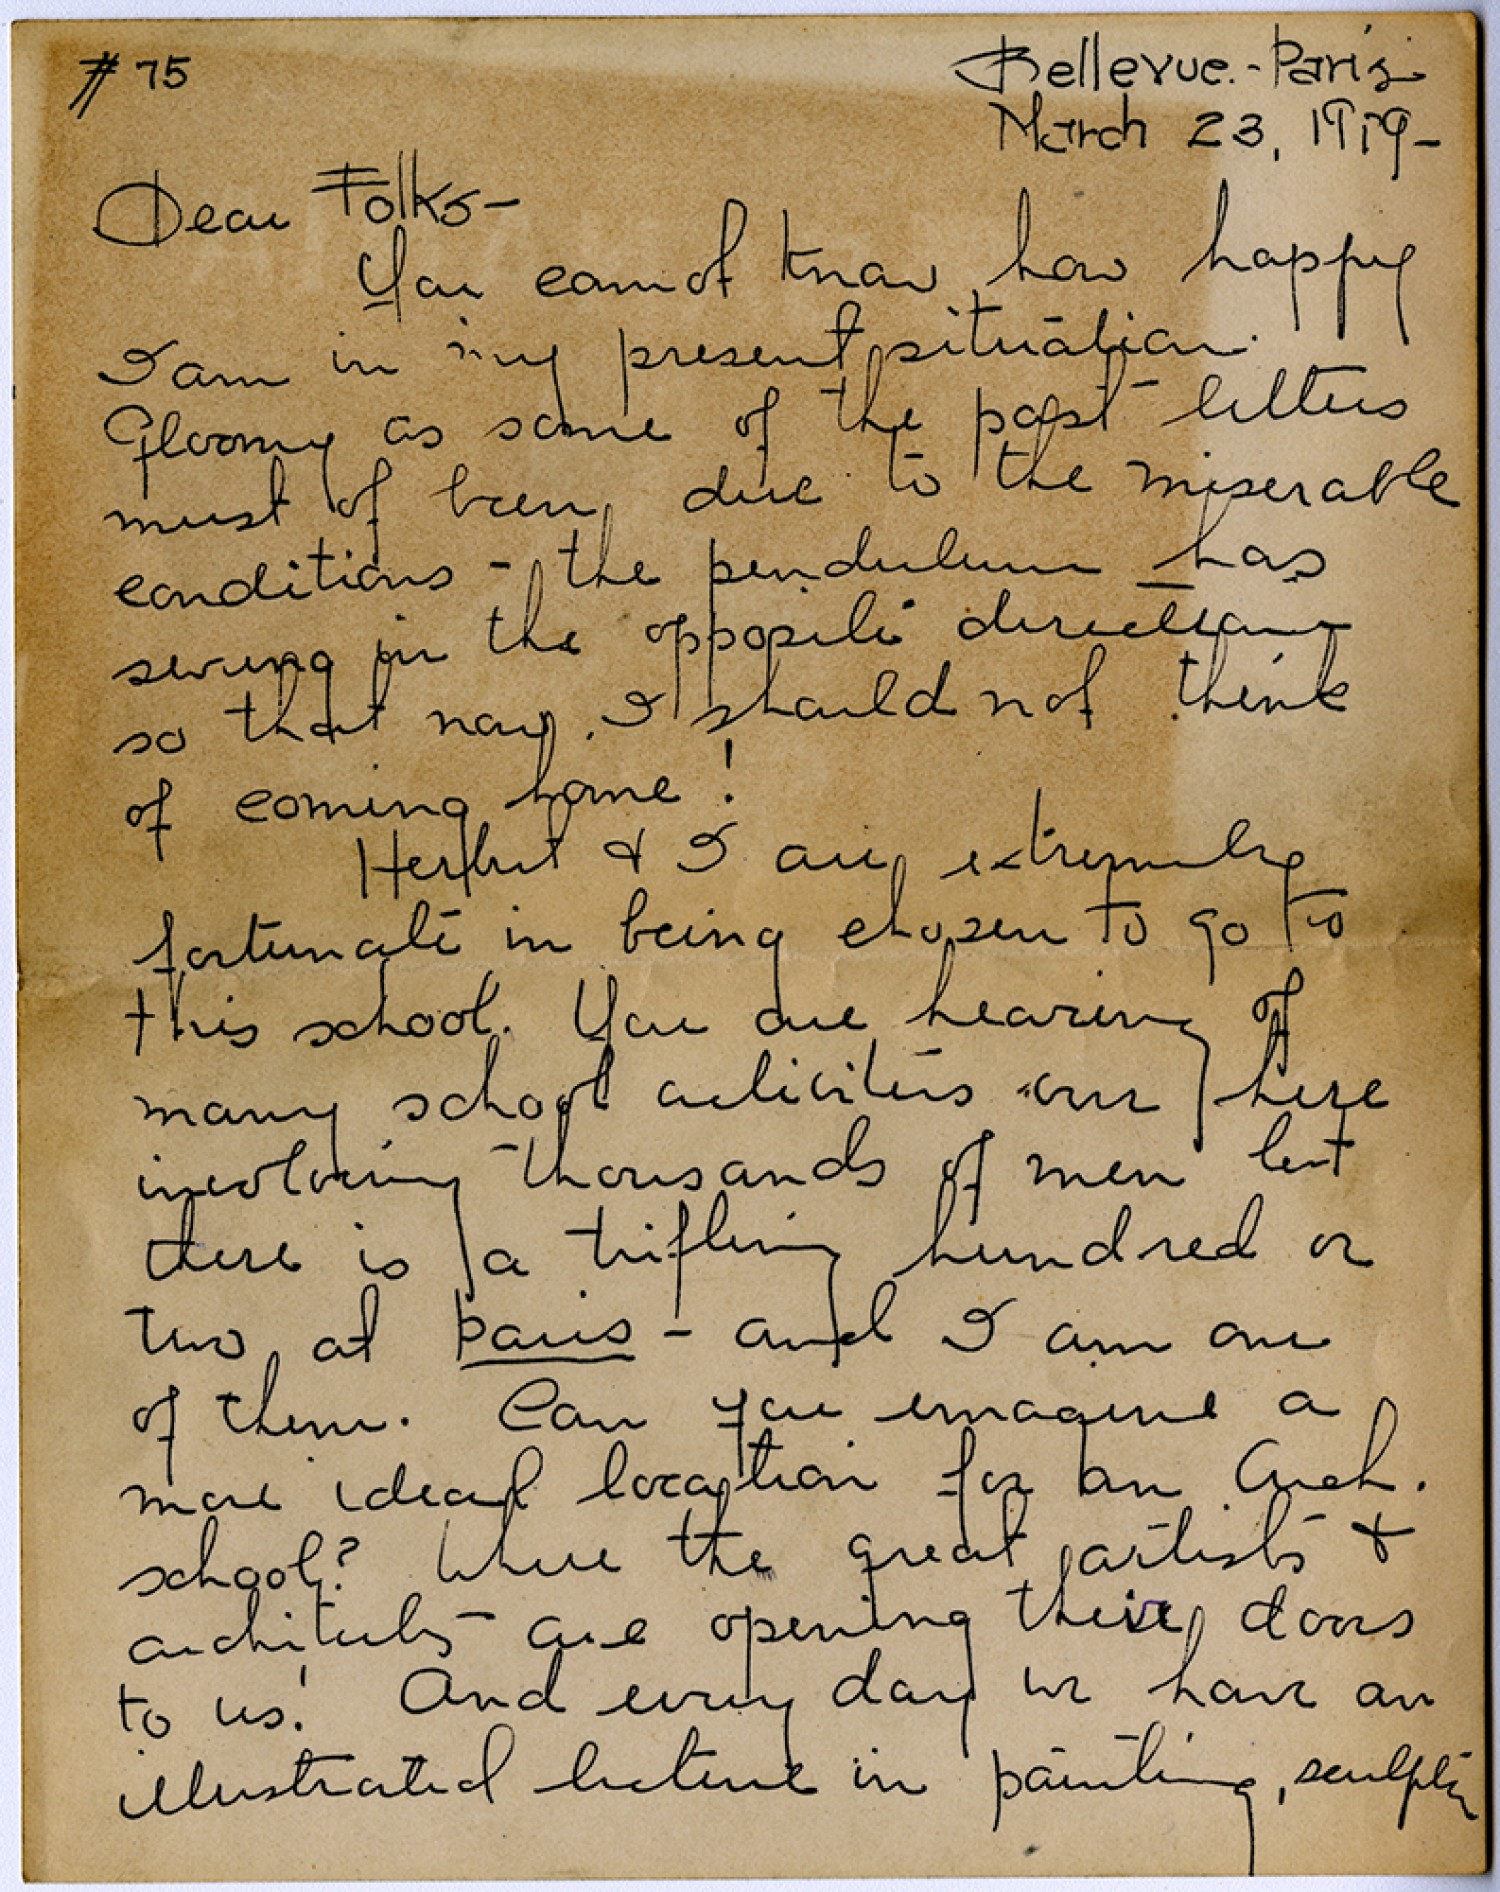 # 75
Bellevue.-Paris
March 23, 1919-
Dear Folks-
You cannot know how happy
I am in my present situation.
Gloomy as some of the past letters
must of been, due to the miserable
conditions - the pendulum has
swung in the opposite direction
so that now, I should not think
of coming home!
Herbert & I are extremely
fortunate in being chosen to go to
this school. You are hearing of
many school activities over here
involving thousands of men but
there is a trifling hundred or
two at Paris - and I am one
of them. Can you imagine a
more ideal location for an Arch.
school? Where the great artists &
architects are opening their doors
to us! And every day we have an
illustrated lecture in painting, sculptur